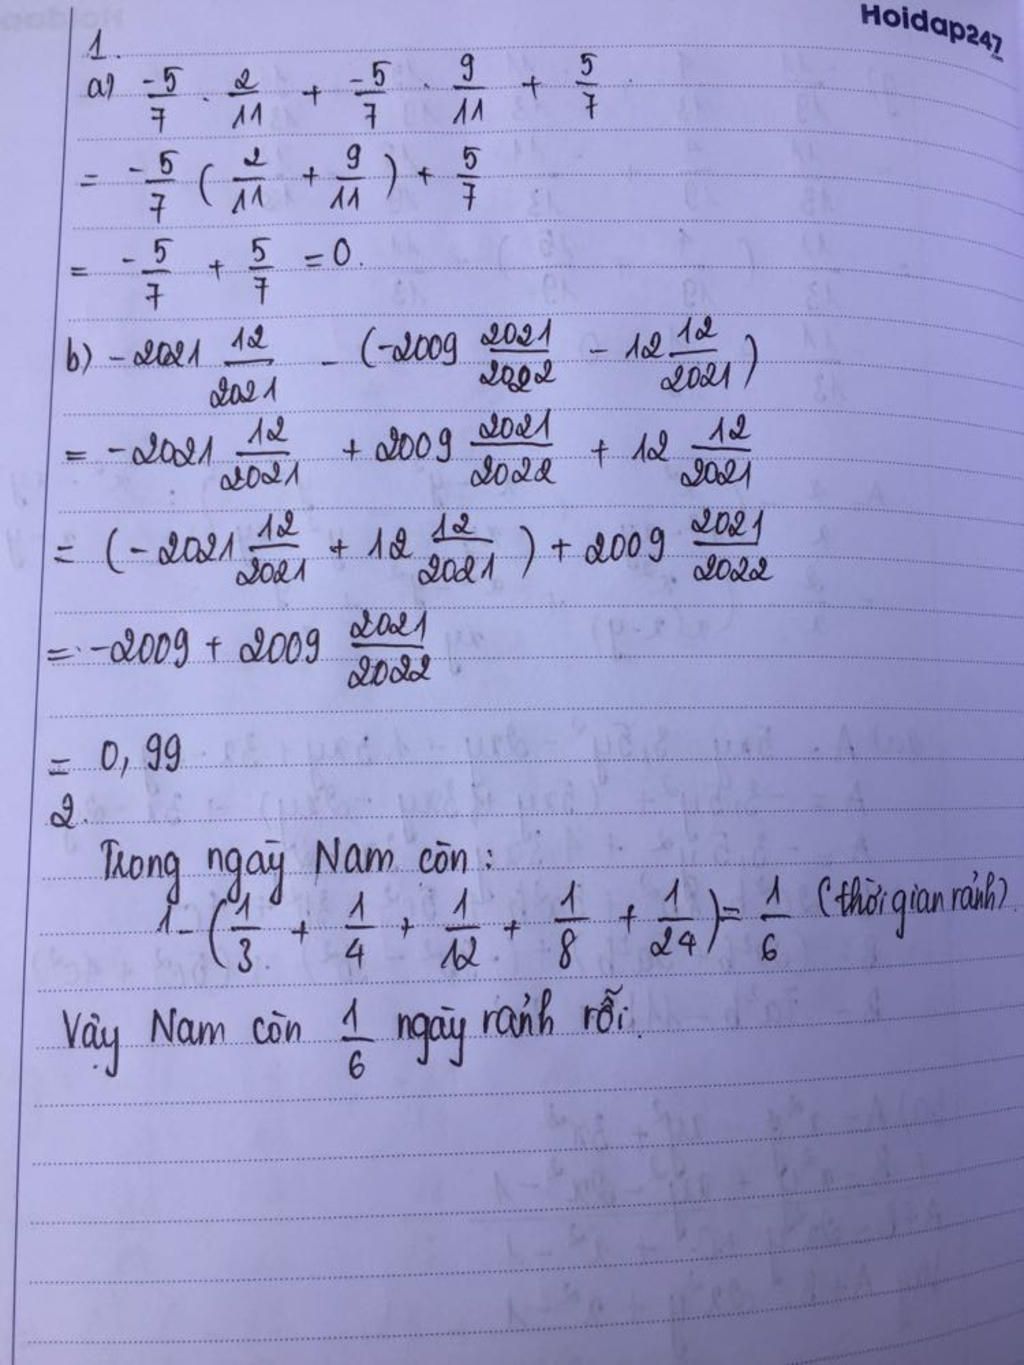 Hoidap247
1.
a) -5/7 . 2/11 + -5/7 . 9/11 + 5/7
= -5/7 ( 2/11 + 9/11 ) + 5/7
= -5/7 + 5/7 = 0.
b) -2021 12/2021 - (-2009 2021/2022 - 12 12/2021 )
= -2021 12/2021 + 2009 2021/2022 + 12 12/2021
= ( -2021 12/2021 + 12 12/2021 ) + 2009 2021/2022
= -2009 + 2009 2021/2022
= 0,99
2.
Trong ngày Nam còn :
1 - ( 1/3 + 1/4 + 1/12 + 1/8 + 1/24 ) = 1/6 (thời gian rảnh)
Vậy Nam còn 1/6 ngày rảnh rỗi.